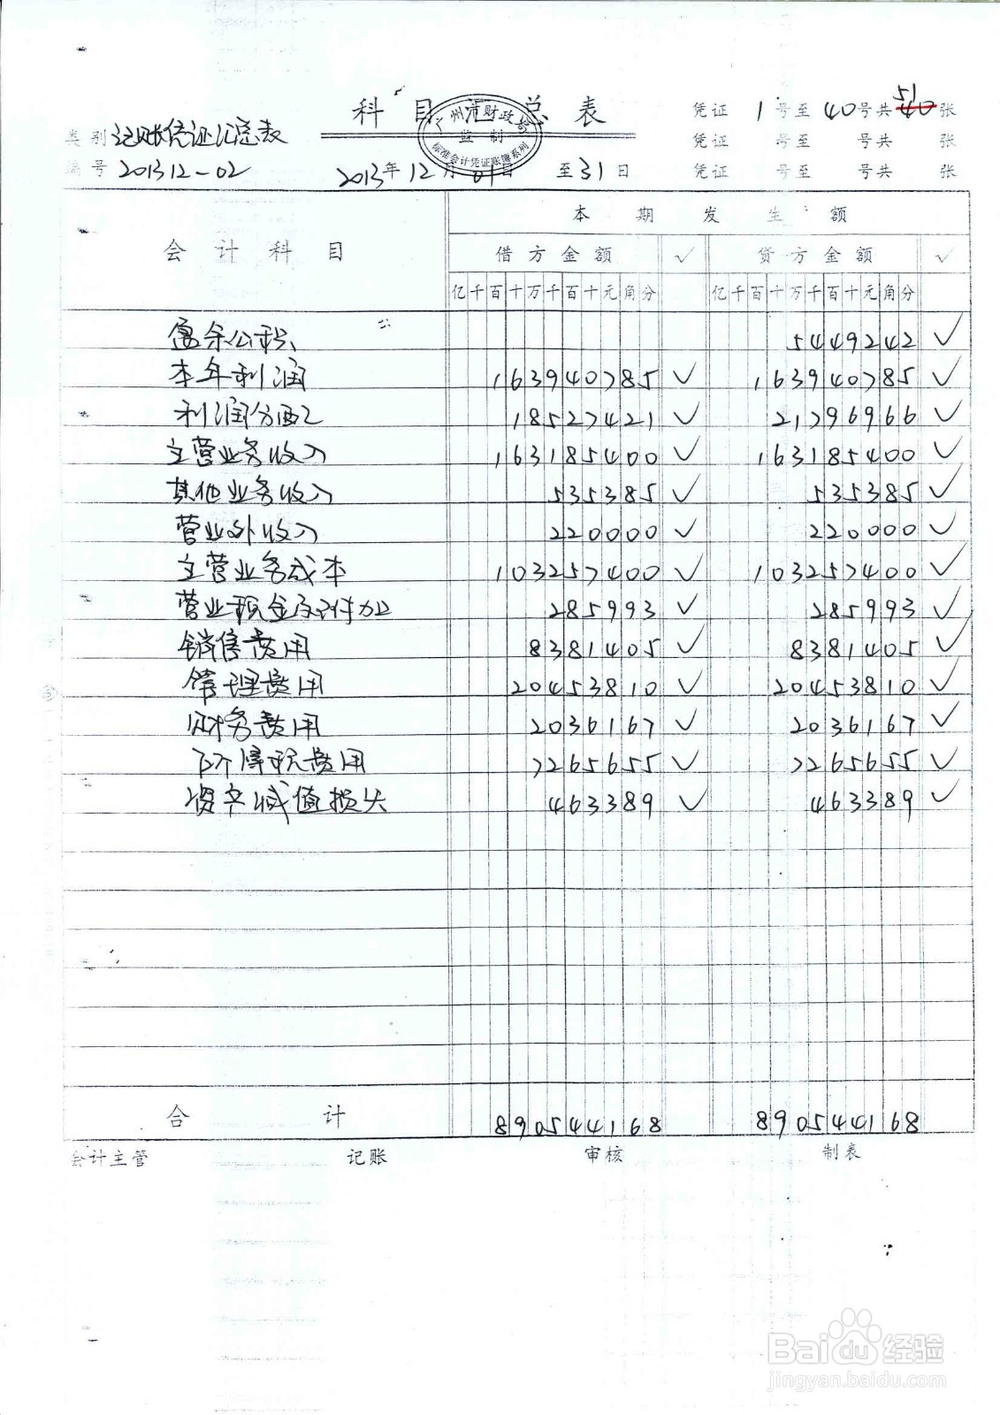 科目汇总表
广州市财政局
监制
标准会计凭证账簿系列
凭证 1 号至 40 号共 51 40 张
凭证 号至 号共 张
凭证 号至 号共 张
类别 记账凭证汇总表
编号 201312-02
2013年12月01日 至31日
会计科目 本期发生额
借方金额 √ 贷方金额 √
亿千百十万千百十元角分 亿千百十万千百十元角分
盈余公积 5449242 √
本年利润 163940785 √ 163940785 √
利润分配 18527421 √ 21796966 √
主营业务收入 163185400 √ 163185400 √
其他业务收入 535385 √ 535385 √
营业外收入 220000 √ 220000 √
主营业务成本 103257400 √ 103257400 √
营业税金及附加 285993 √ 285993 √
销售费用 8381405 √ 8381405 √
管理费用 20453810 √ 20453810 √
财务费用 2036167 √ 2036167 √
所得税费用 7265655 √ 7265655 √
资产减值损失 463389 √ 463389 √
合计 890544168 890544168
会计主管 记账 审核 制表
Baidu 经验
jingyan.baidu.com